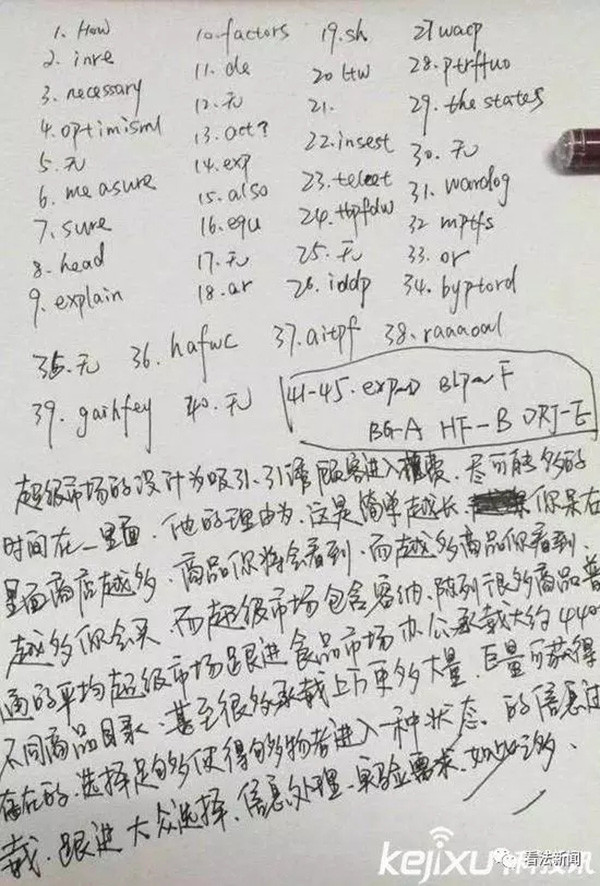 1. How 10. factors 19. sh 27 wacp
2. inre 11. de 20 ttw 28. ptrftuo
3. necessary 12. 无 21. 29. the states
4. optimisml 13. act? 22. insest 30. 无
5. 无 14. exp 23. teleet 31. wardog
6. measure 15. also 24. 32 mptfs
7. sure 16. equ 25. 无 33. or
8. head 17. 无 26. iddp 34. byptord
9. explain 18. ar
35. 无 36. hafwc 37. aitpf 38. raaaoal
39. gaihfey 40. 无 41-45. exp-D BLp-F
BG-A HF-B DRJ-E
超级市场的设计为吸引、引诱顾客进入 尽可能多的
时间在一里面. 他的理由为.这是简单越长. 你呆在
里面商店越多.商品你将会看到.而越多商品你看到.
越多你会买.而超级市场包含容纳.陈列很多商品普
通的平均超级市场跟进食品市场办公承载大约440
不同商品目录.甚至很多承载上万更多大量.巨量可获得
存在的.选择足够多使得购物者进入一种状态.的信息过
载.跟进大众选择.信息处理.实验需求.如此之多.
看法新闻
kejixu 科技讯